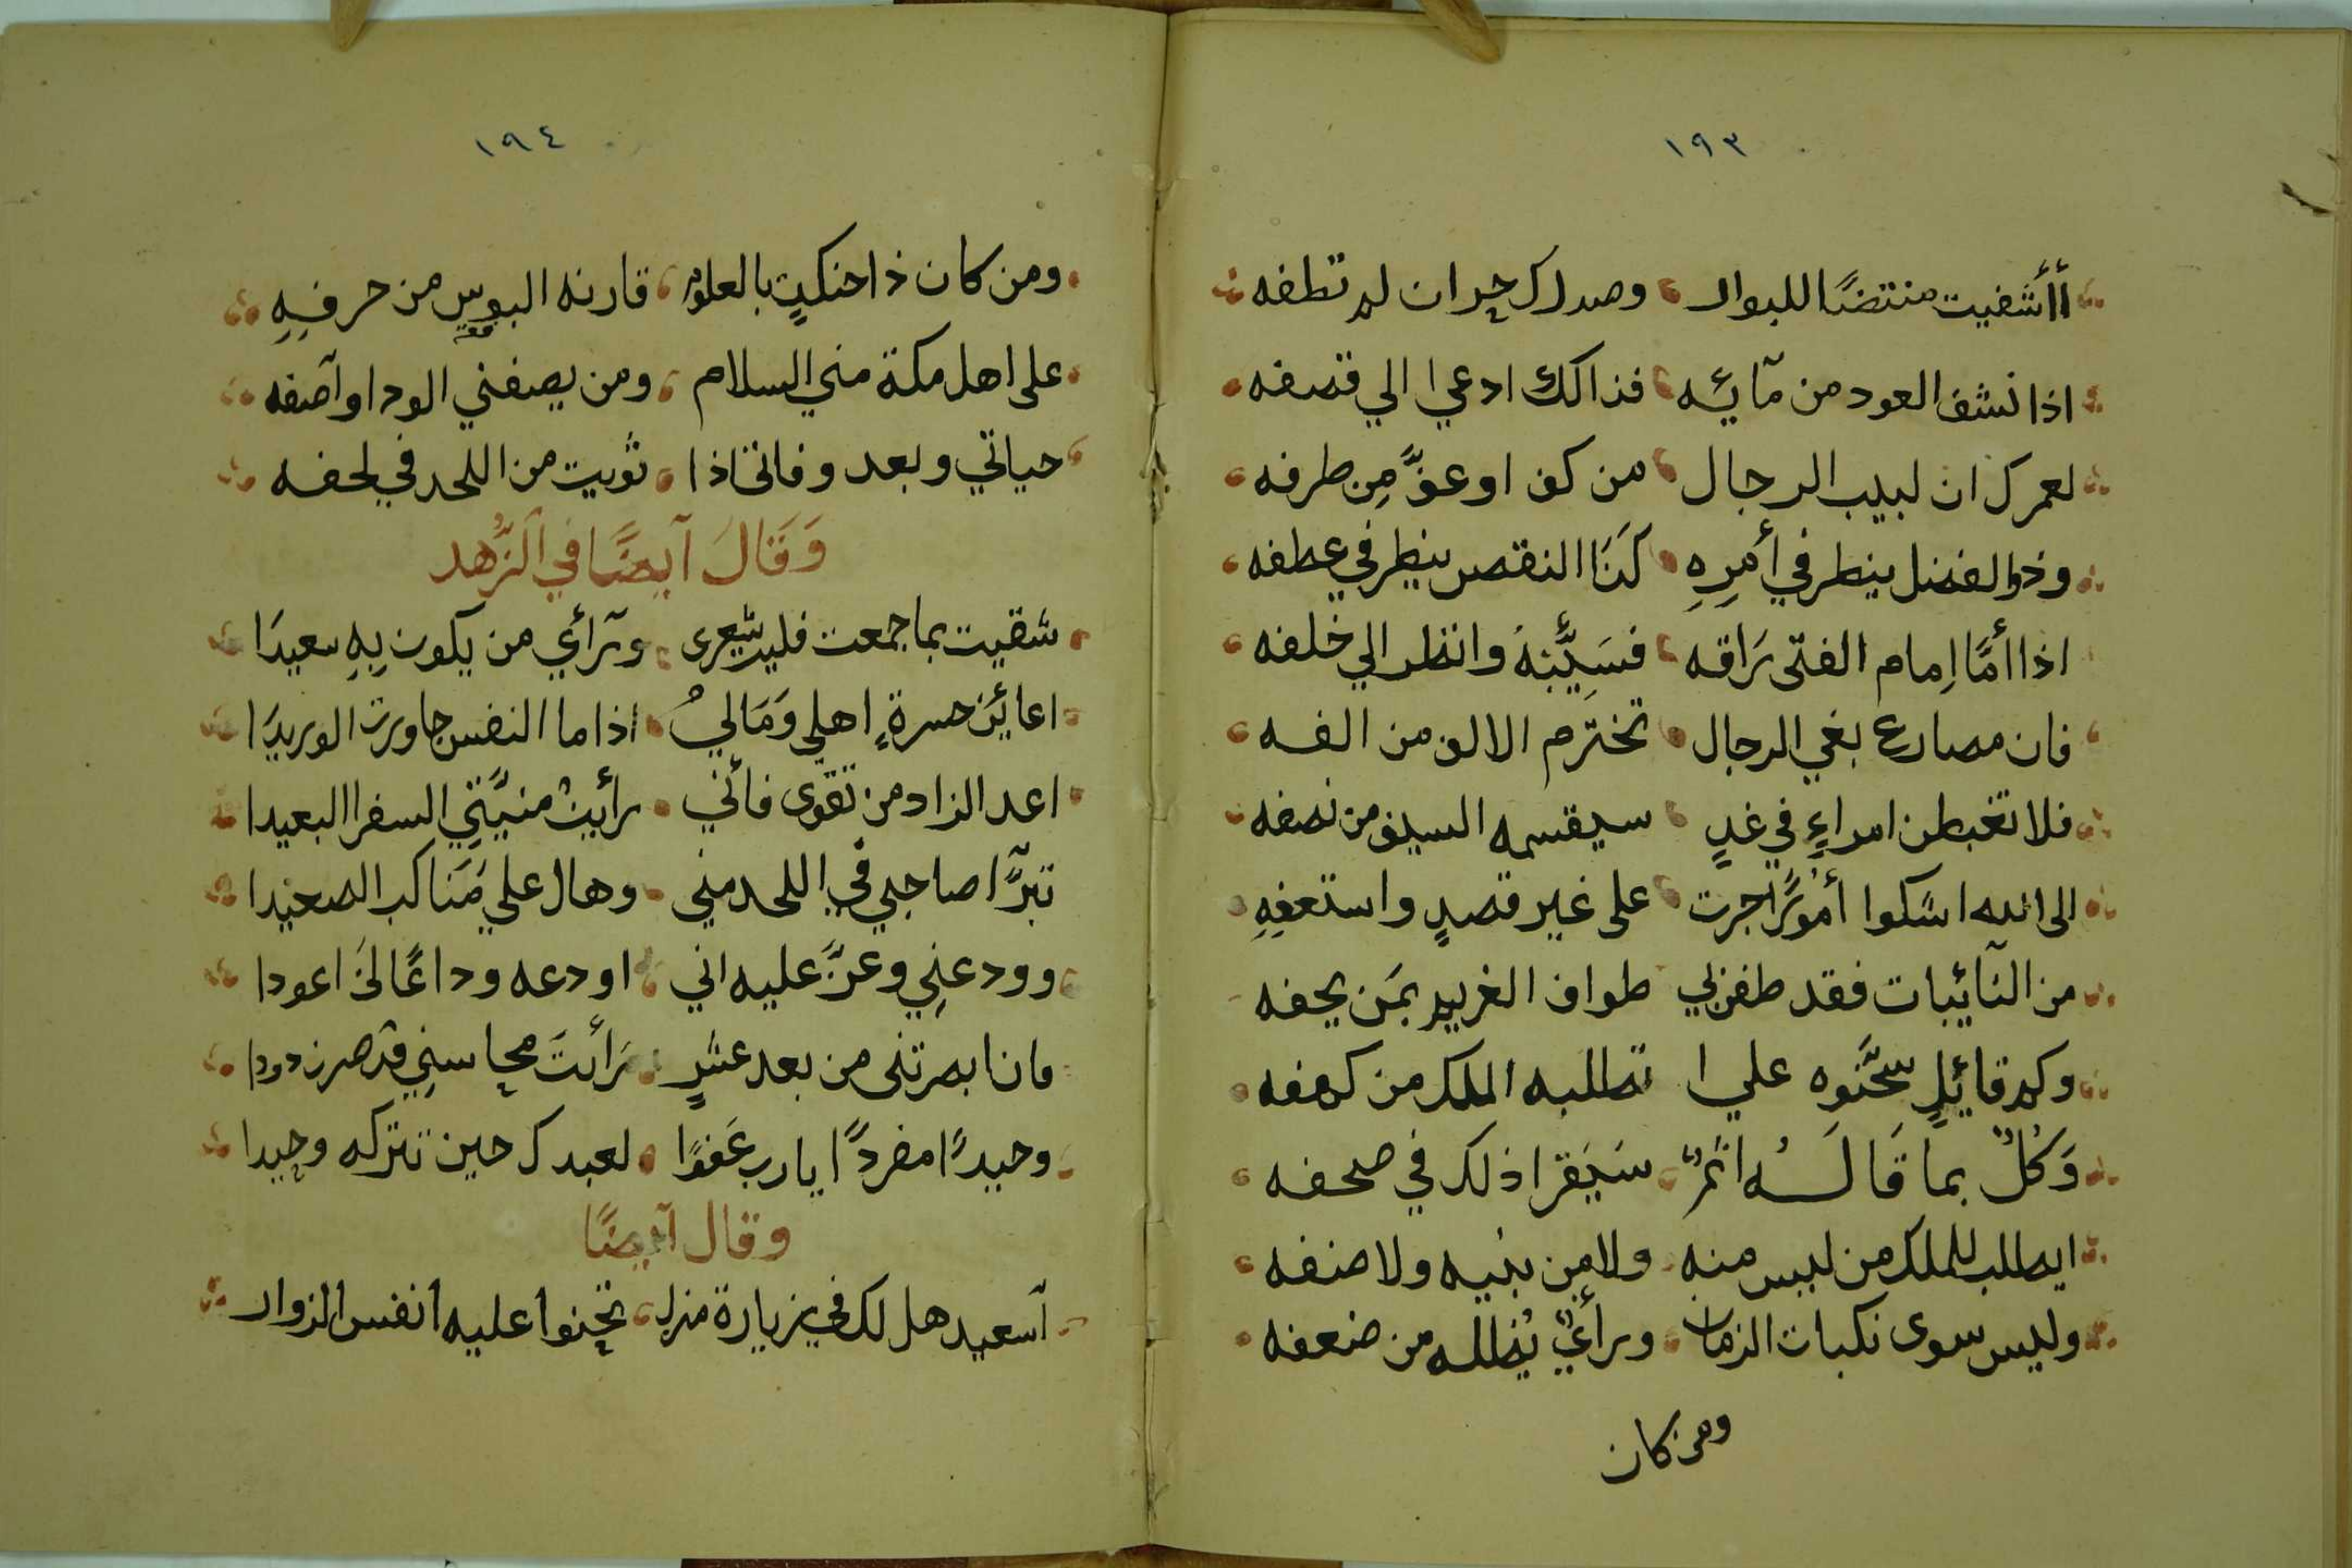 ١٩٣
أأشفيت منتضًا للبوار وصدرك حران لم تطفه
اذا نشف العود من مآئيه فذالك ادعي الي قصفه
لعمرك ان لبيب الرجال من كف او عفَّ مِن طرفه
وذو الفضل ينظر في أمرِهِ كَنَا النقص ينظر في عطفه
اذا أمَّا اِمام الفتى رَاقه فسَيِّئبْهُ وانظر الي خلفه
فان مصارع بغي الرجال تخترّم الالف من الفه
فلا تغبطن امراءٍ في غدٍ سيقسمه السيف من نصفه
الى الله اشكوا أمُورًا جرت على غير قصدٍ واستعفِهِ
من النآئيبات فقد طفن بي طواف الغريم بمَن يحفه
وكم قائيلٍ سحَّنوه علي ا تطلبه الملك من كهفه
وَكُلٌ بما قَالَهُ اثمٌ سَيَقرا ذلك في صحفه
ايطلب للملك من ليس منه ولا مِن بنيه ولا صنفه
وليس سوى نكبات الزمان ورأيٌ يُظله من ضعفه
ومن كان
١٩٤
ومن كان ذا حنكةٍ بالعلوم قارنه البوس من حرفِهِ
على اهل مكة مني السلام ومن يصفني الود او آصفه
حياتي وبعد وفاتي اذا ثويت من اللحد في لحفه
وَقَالَ آيضًا في الزُّهد
شقيت بما جمعت فليت شعرى ورآئي من يكون بِهِ سعيدَا
اعائين حسرةٍ اهلي وَمَالي اذا ما النفس جاورت الوريدَا
اعد الزاد من تقوّى فأني رأيتُ منيَّتِي السفرا البعيدا
تبرَّآ صاحبي في اللحد مني وهال علي مَنَاكب الصعيدا
وودعنِي وعزَّ عليه اني اودعه وداعًا لَن اعودا
فان ابصرتنى من بعد عشرٍ رَأيتَ محاسنِي قد صرن دودا
وحيدًا مفردًا يا رب عَفوًا لعبدك حين تتركه وحيدا
وقال آيضًا
آسعيد هل لك في زيارة منزل تحنوا عليه أنفس الزوار